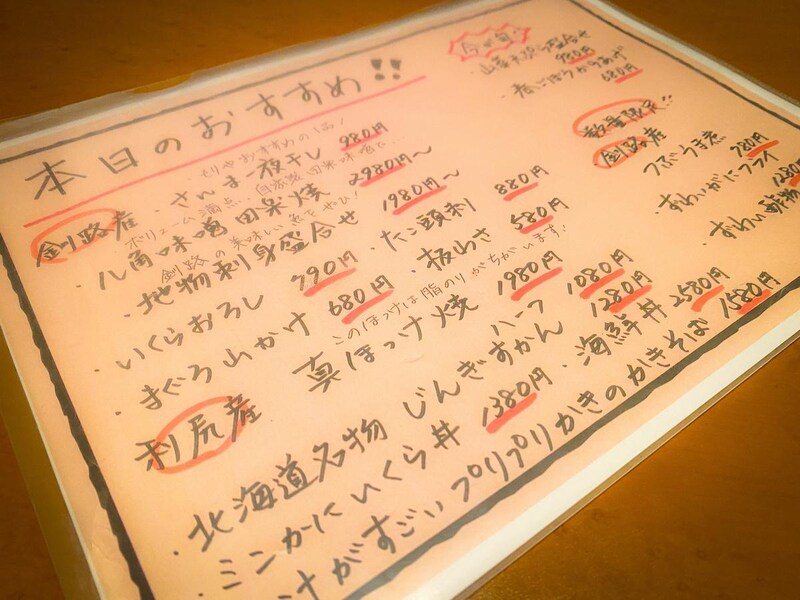 本日のおすすめ!!
もりやおすすめの1品!
釧路産・さんま一夜干し 980円
ボリューム満点…自家製田楽味噌で…
・八角味噌田楽焼 2980円〜
釧路の美味しい魚をぜひ!
・地物刺身盛合せ 1980円〜
・いくらおろし 790円 ・たこ頭刺 880円
・まぐろ山かけ 680円 ・板わさ 580円
このほっけは脂のりがちがいます!
利尻産 真ほっけ焼 1980円
ハーフ 1080円
・北海道名物 じんぎすかん 1280円
・ミンかにいくら丼 1380円 ・海鮮丼 2580円
汁がすごいプリプリかきのかきそば 1580円
今が旬
・山菜天ぷら盛合せ 980円
・春ごぼうからあげ 680円
数量限定!!
釧路産
つぶうま煮 780円
・ずわいがにフライ 1280
・ずわい酢物